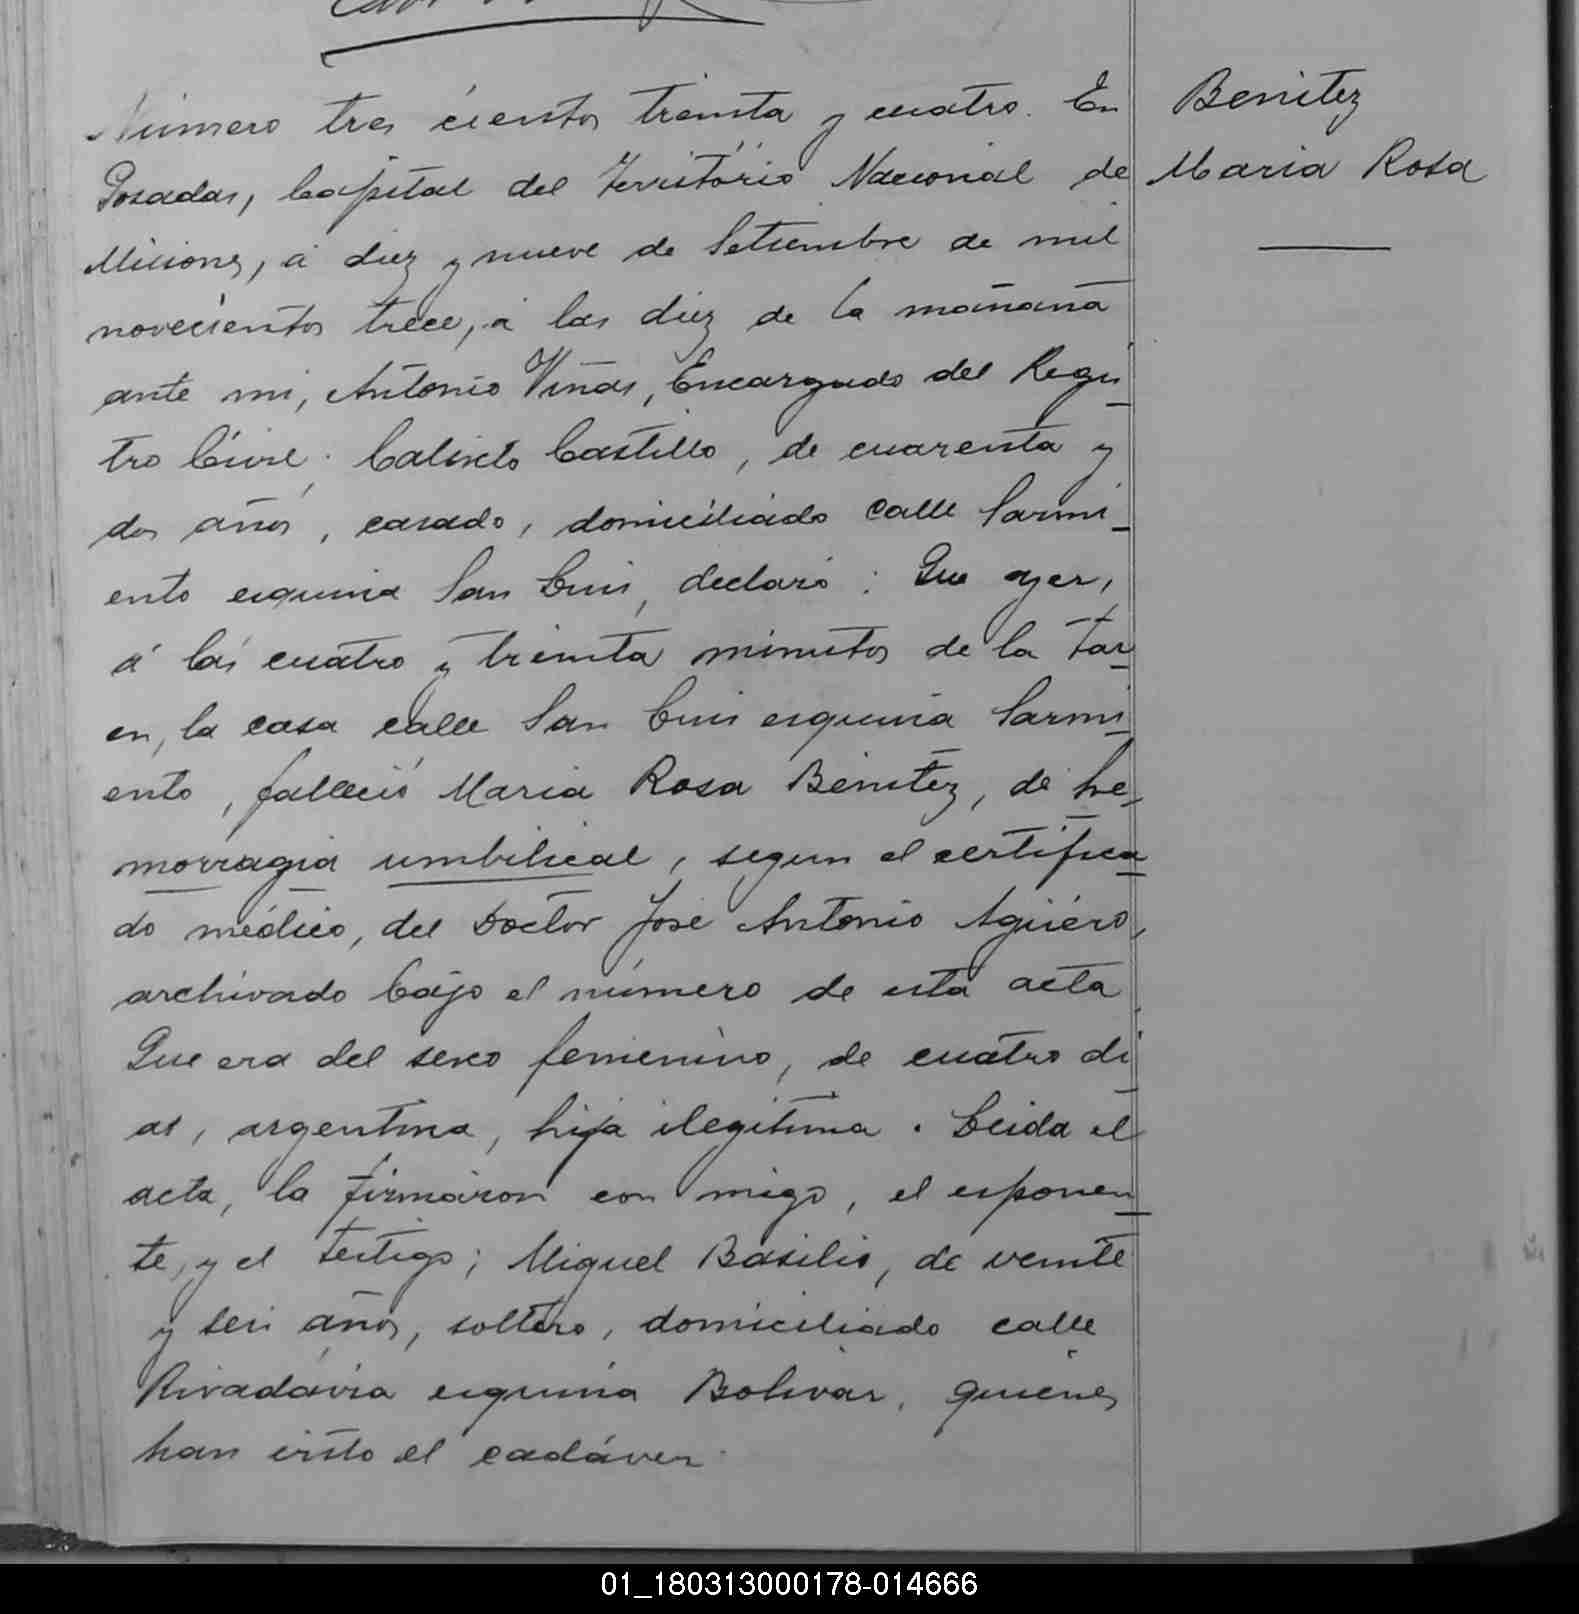 Número tres cientos treinta y cuatro. En
Posadas, Capital del Territorio Nacional de
Misiones, á diez y nueve de Setiembre de mil
novecientos trece, á las diez de la mañana
ante mi, Antonio Viñas, Encargado del Regis-
tro Civil; Calixto Castillo, de cuarenta y
dos años, casado, domiciliado calle Sarmi-
ento esquina San Luis, declaró: Que ayer,
á las cuatro y treinta minutos de la tar-
en, la casa calle San Luis esquina Sarmi-
ento, falleció Maria Rosa Benitez, de he-
morragia umbilical, segun el certifica-
do médico, del Doctor José Antonio Agüero,
archivado bajo el número de esta acta
Que era del sexo femenino, de cuatro di-
as, argentina, hija ilegitima. Leida el
acta, la firmaron con migo, el esponen-
te, y el testigo; Miguel Basilio, de veinte
y seis años, soltero, domiciliado calle
Rivadavia esquina Bolivar, quienes
han visto el cadáver.
Benitez
Maria Rosa
01_180313000178-014666